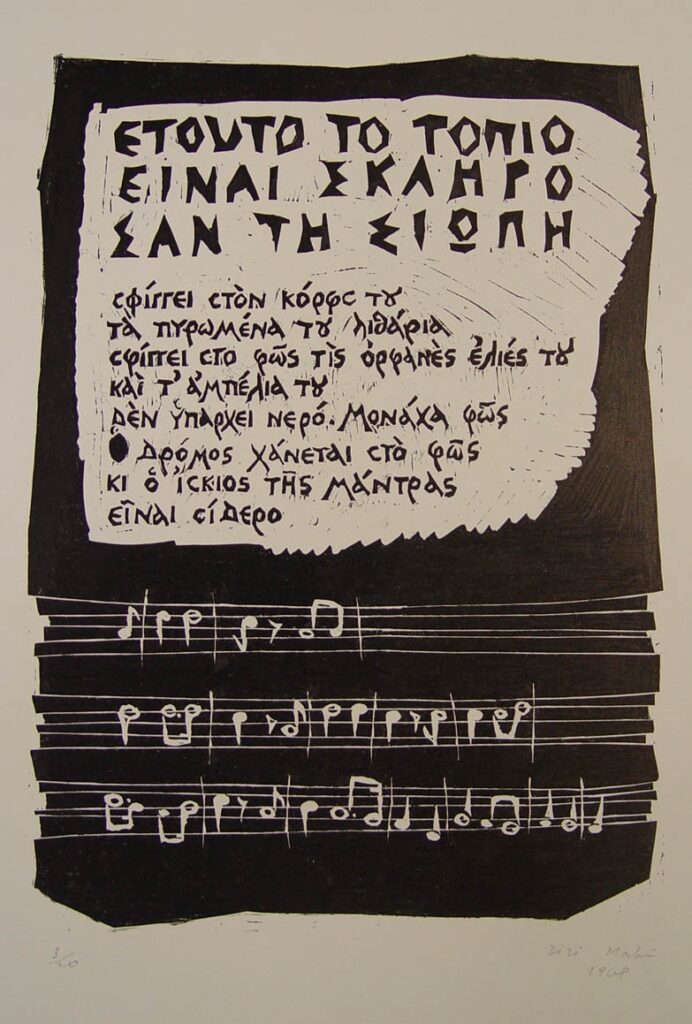 ΕΤΟΥΤΟ ΤΟ ΤΟΠΙΟ
ΕΙΝΑΙ ΣΚΛΗΡΟ
ΣΑΝ ΤΗ ΣΙΩΠΗ
σφίγγει στὸν κόρφο του
τὰ πυρωμένα του λιθάρια
σφίγγει στο φῶς τὶς ὀρφανὲς ἐλιές του
καὶ τ' ἀμπέλια του
Δὲν ὑπάρχει νερό. Μονάχα φῶς
Ὁ δρόμος χάνεται στὸ φῶς
κι ὁ ἴσκιος τῆς μάντρας
εἶναι σίδερο
Zizi